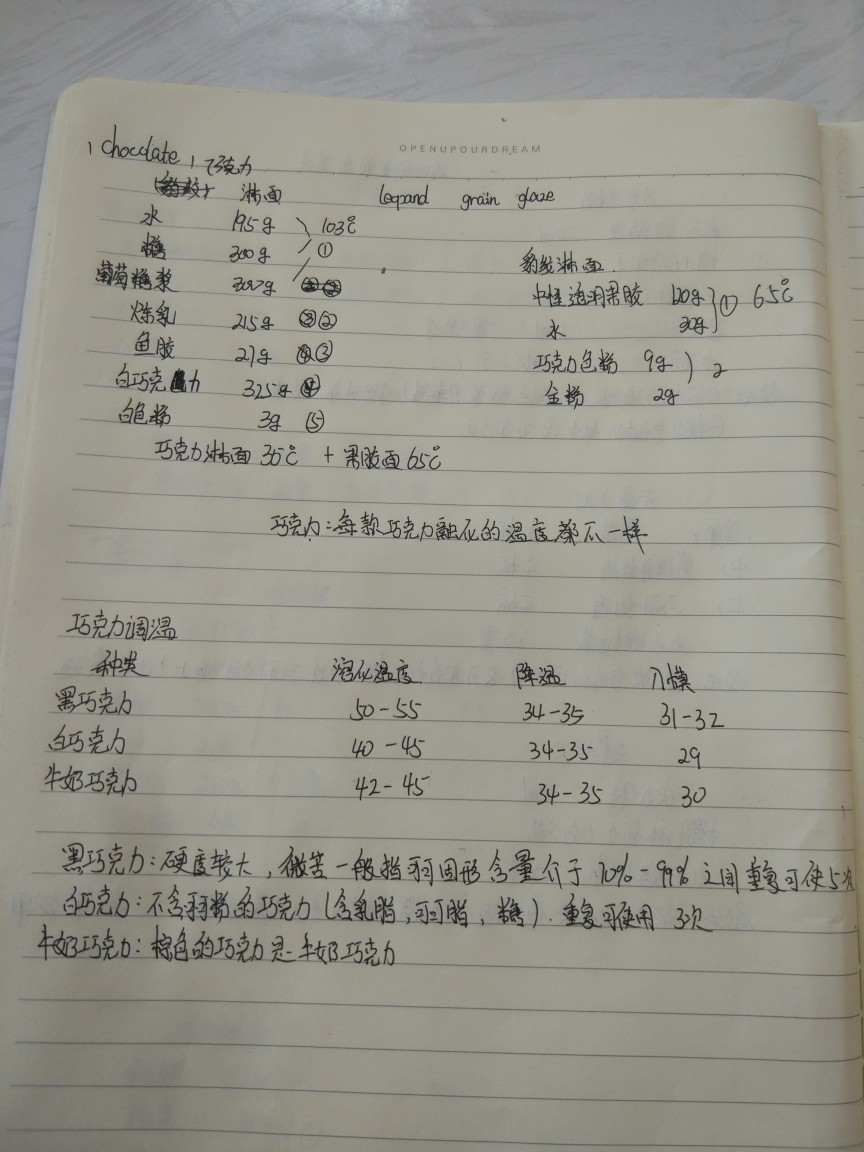 OPENUPOURDREAM
1 chocolate, 巧克力
淋面
水 195g 103℃
糖 300g ①
葡萄糖浆 300g
炼乳 215g ②
鱼胶 21g ③
白巧克力 325g ④
白色粉 3g ⑤
巧克力淋面 35℃ + 果胶面 65℃
Leopand grain glaze
豹纹淋面.
中性透明果胶 120g ① 65℃
水 30g
巧克力色粉 9g 2
金粉 2g
巧克力:每款巧克力融化的温度都不一样
巧克力调温
种类 溶化温度 降温 入模
黑巧克力 50-55 34-35 31-32
白巧克力 40-45 34-35 29
牛奶巧克力 42-45 34-35 30
黑巧克力:硬度较大,微苦一般指可可固形含量介于70%-99%之间重复可使5次
白巧克力:不含可可粉的巧克力(含乳脂,可可脂,糖).重复可使用 3次
牛奶巧克力:棕色的巧克力是牛奶巧克力